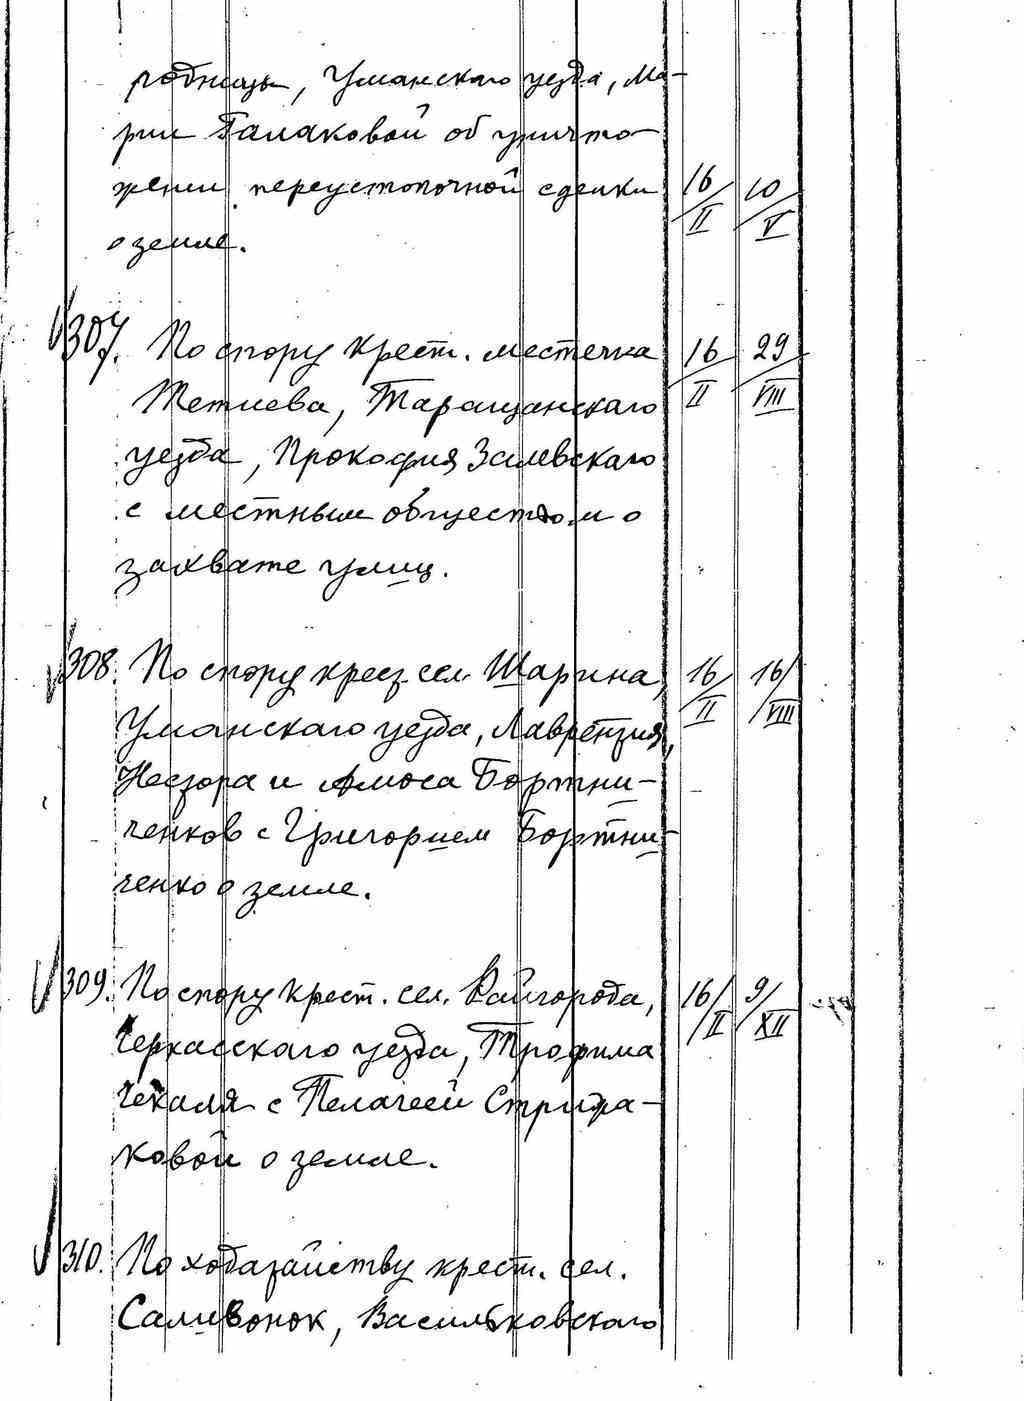 родницы, Уманскаго уезда, Ма-
рии Галаковой об уничто-
жении переуступочной сделки 16/II 10/V
о земле.
307. По спору крест. местечка 16/II 29/VIII
Тетиева, Таращанскаго
уезда, Прокофия Залевскаго
с местным обществом о
захвате улиц.
308. По спору крест. сел. Шарина, 16/II 16/VIII
Уманскаго уезда, Лаврентия,
Нестора и Амоса Бортни-
ченков с Григорием Бортни-
ченко о земле.
309. По спору крест. сел. Райгорода, 16/II 9/XII
Черкасскаго уезда, Трофима
Чекаля с Пелагеей Стрижа-
ковой о земле.
310. По ходатайству крест. сел.
Саливонок, Васильковскаго